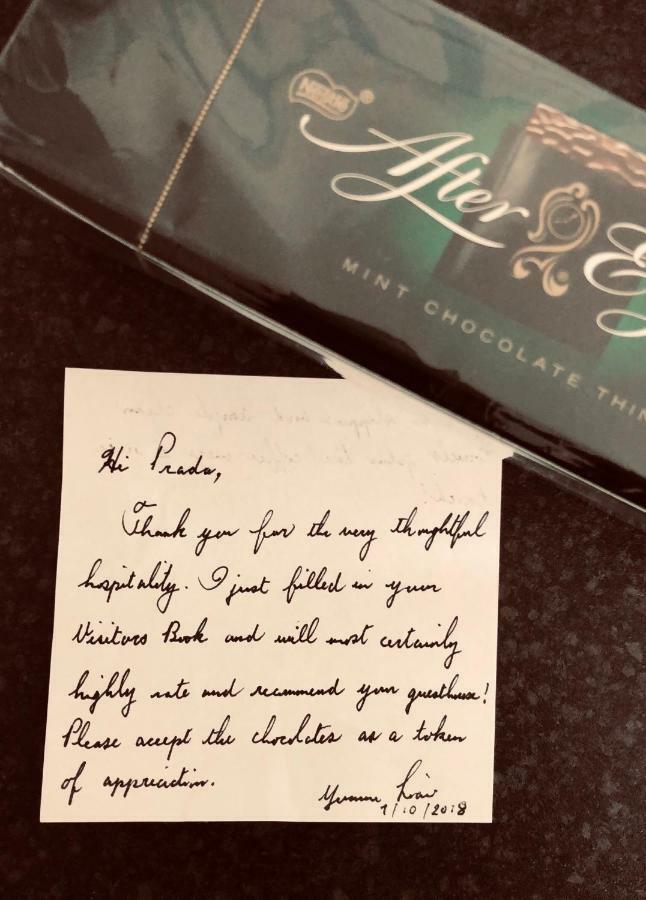 Nestlé®
After E
MINT CHOCOLATE THIN
Hi Prada,
Thank you for the very thoughtful
hospitality. I just filled in your
Visitors Book and will most certainly
highly rate and recommend your guesthouse!
Please accept the chocolates as a token
of appreciation.
Yvonne
7/10/2018